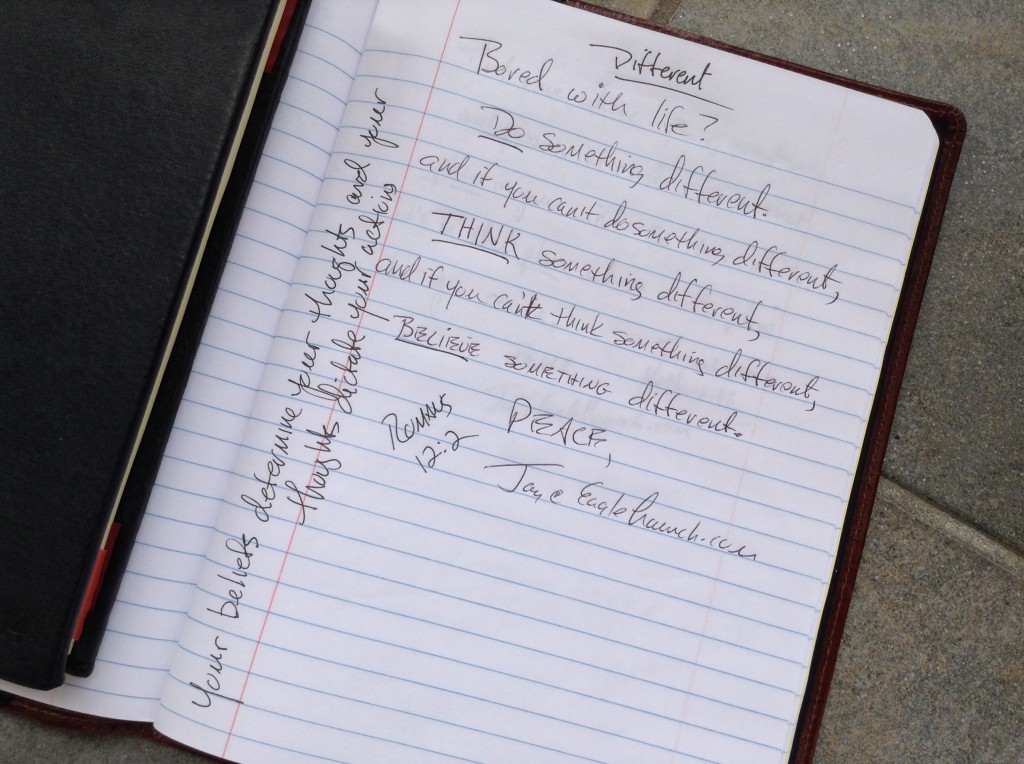 Different
Bored with life?
Do something different.
and if you can't do something different,
THINK something different,
and if you can't think something different,
BELIEVE SOMETHING different.
PEACE,
Romans
12:2
Your beliefs determine your thoughts and your
thoughts dictate your actions